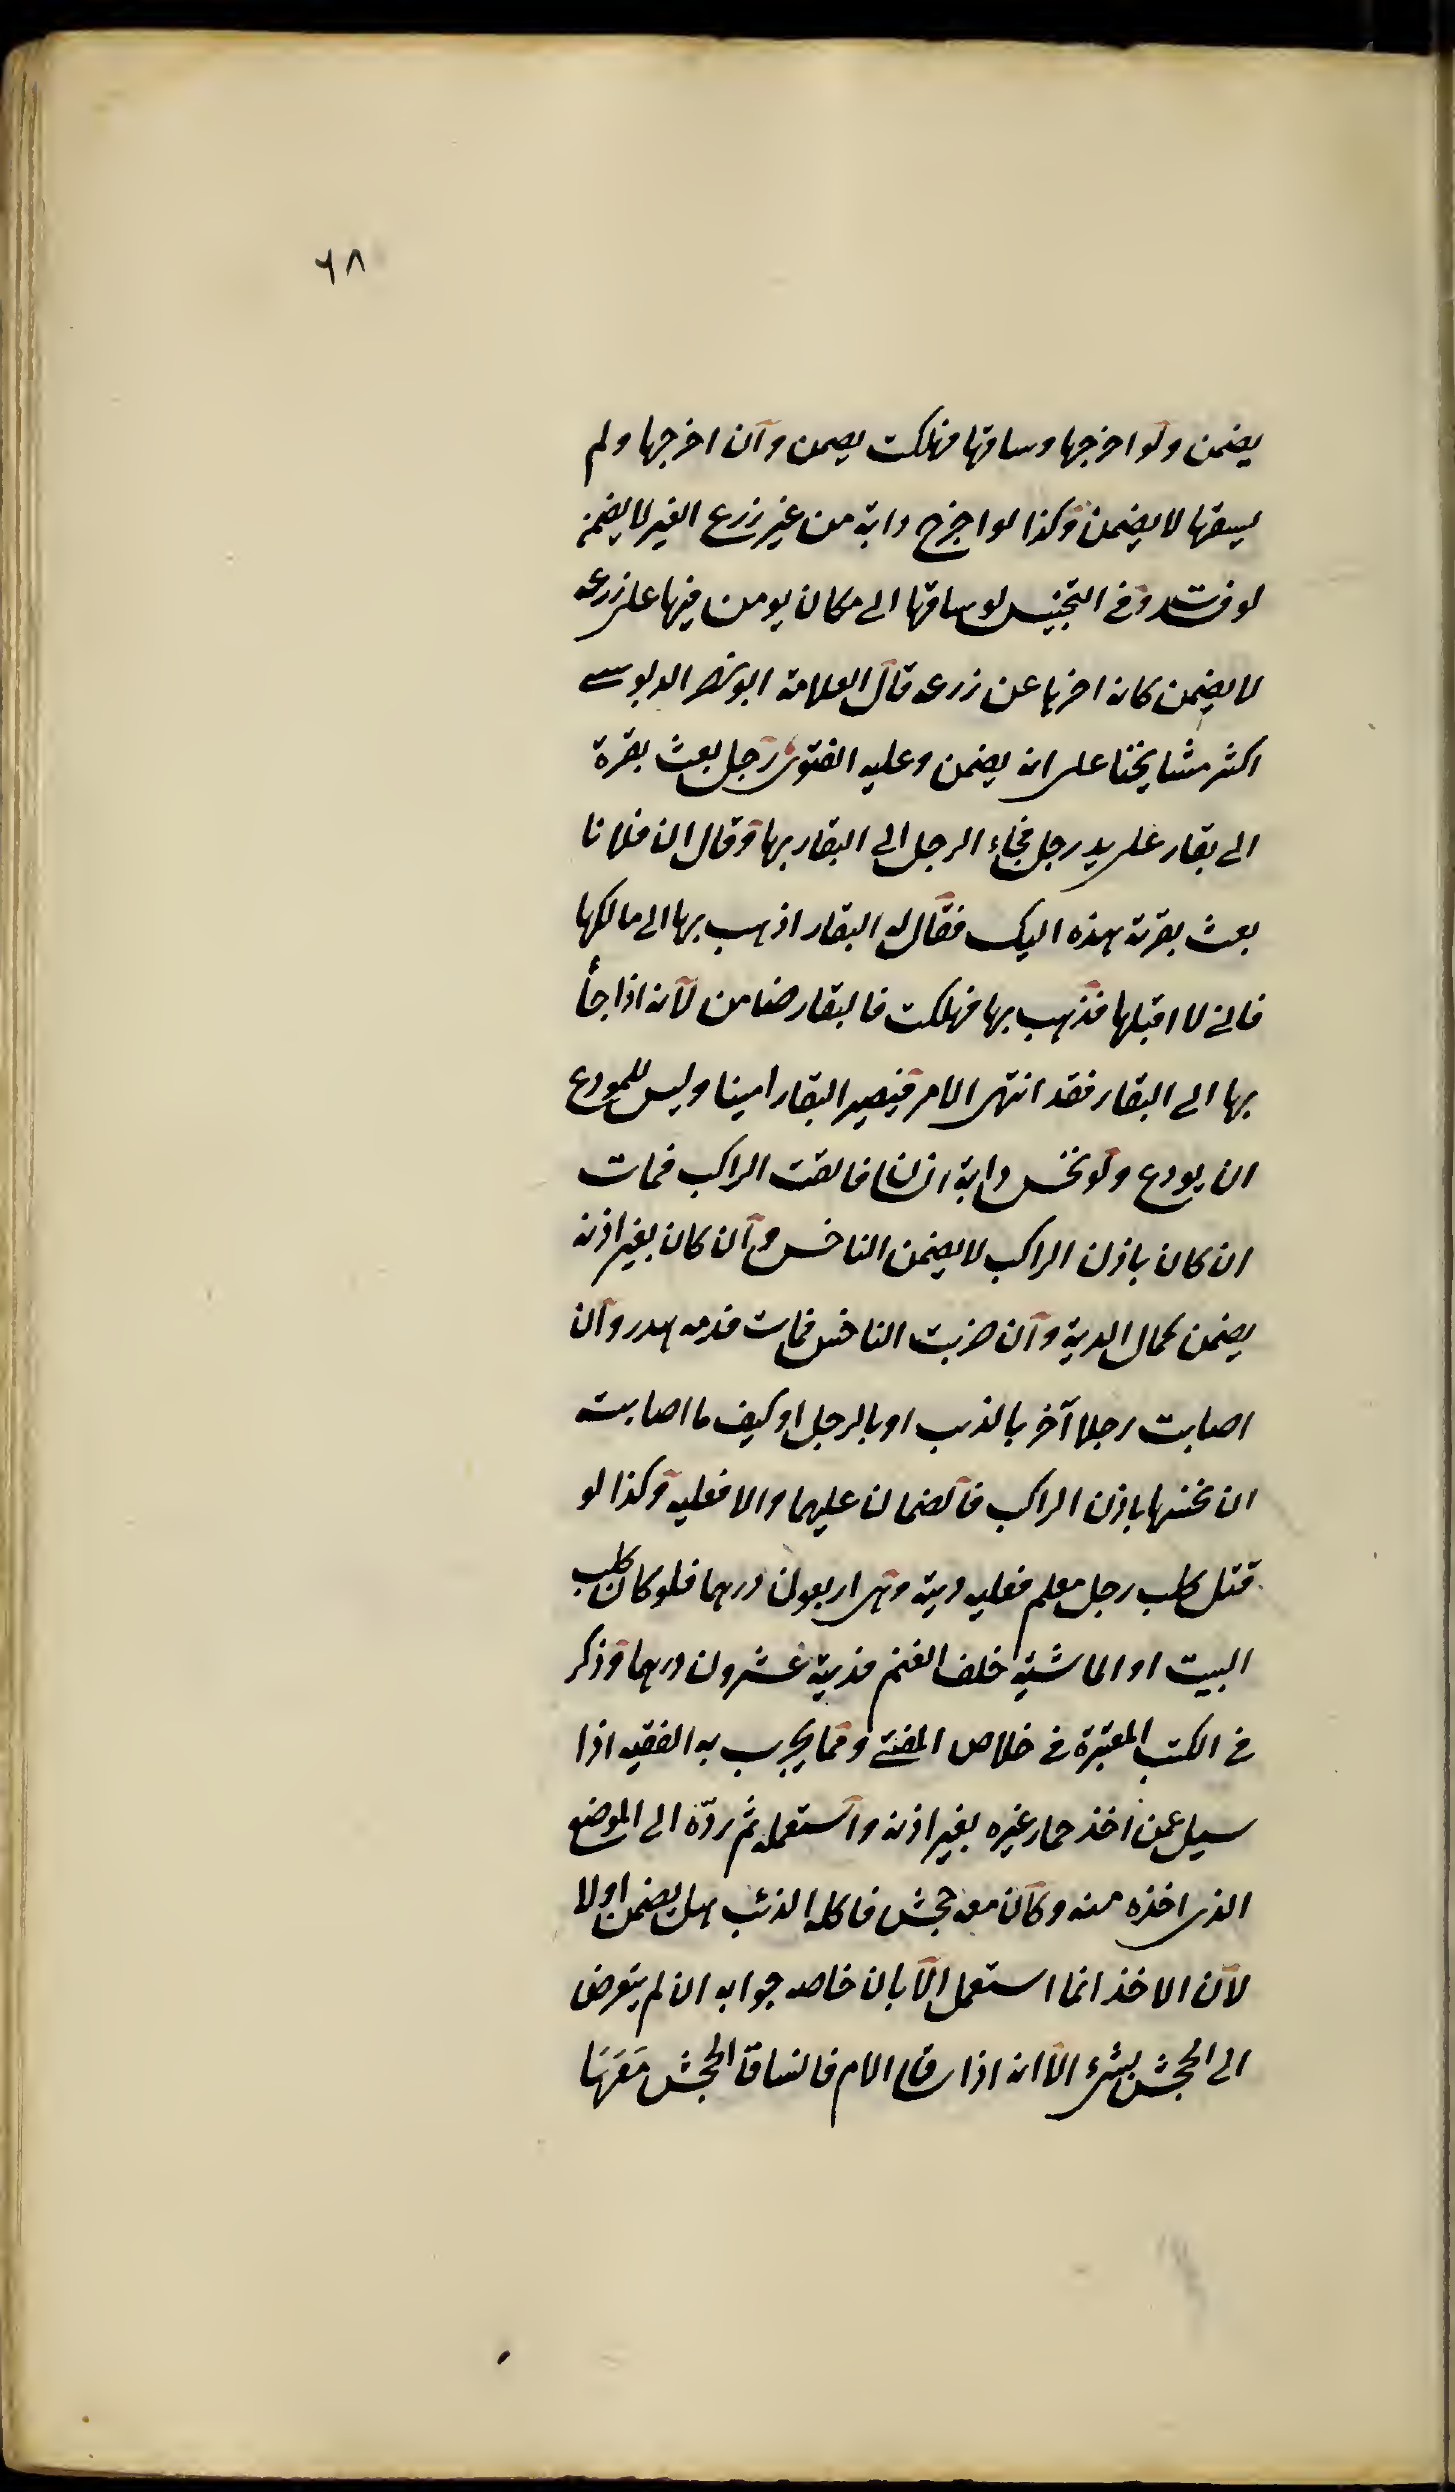 ٦٨
يضمن ولو اخرجها وساقها فهلكت يضمن وان اخرجها ولم
يسقها لا يضمن وكذا لو اخرج دابة من غير زرع الغير لا يضمن
وفى التجنيس لو ساقها الى مكان يومن فيها على زرعه
لا يضمن كانه اخرها عن زرعه قال العلامة ابو نصر الدبوسى
اكثر مشايخنا على انه يضمن وعليه الفتوى رجل بعث بقرة
الى بقار على يد رجل فجاء الرجل الى البقار بها وقال ان فلانا
بعث بقرته هذه اليك فقال له البقار اذهب بها الى مالكها
فانى لا اقبلها فذهب بها فهلكت فالبقار ضامن لانه اذا جأ
بها الى البقار فقد انتهى الامر فيصير البقار امينا وليس للمودع
ان يودع ولو نخس دابة انسان فالقت الراكب فمات
ان كان باذن الراكب لا يضمن الناخس وان كان بغير اذنه
يضمن كمال الدية وان ضربت الناخس فمات فدمه هدر وان
اصابت رجلا آخر بالذنب او بالرجل او كيف ما اصابت
ان نخسها باذن الراكب فالضمان عليهما والا فعليه وكذا لو
قتل كلب رجل معلم فعليه دية وهى اربعون درهما فلو كان كلب
البيت او الماشية خلف الغنم فدية عشرون درهما وذكر
فى الكتب المعتبرة فى خلاص المفتى ومما يجرب به الفقيه اذا
سيل عمن اخذ حمار غيره بغير اذنه واستعمله ثم ردّه الى الموضع
الذى اخذه منه وكان معه جحش فاكله الذئب هل يضمن او لا
لان الاخذ انما استعمل الاتان خاصه جوابه ان لم يتعرض
الى الجحش بشئ الا انه اذا ساق الام فانساق الجحش مَعَهَا